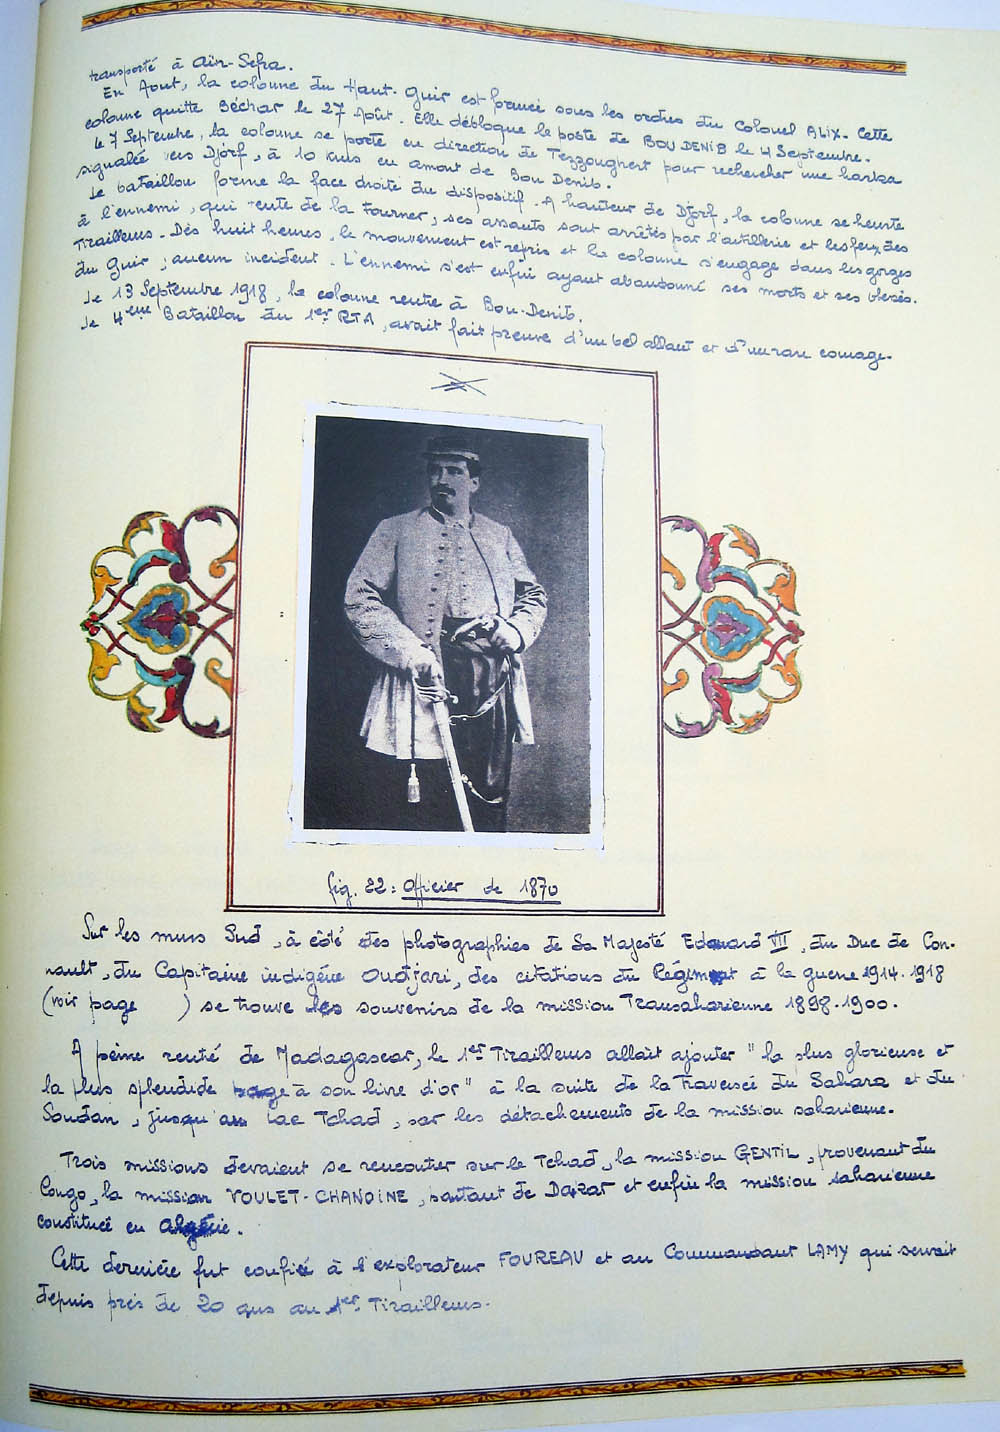 transporté à Aïn-Sefra.
En Aout, la colonne du Haut-Guir est formée sous les ordres du Colonel ALIX. Cette
colonne quitte Béchar le 27 Août. Elle débloque le poste de BOU DENIB le 4 Septembre.
Le 7 Septembre, la colonne se porte en direction de Tezzoughert pour rechercher une harka
signalée vers Djorf, à 10 kms en amont de Bou Denib.
Le bataillon forme la face droite du dispositif. A hauteur de Djorf, la colonne se heurte
à l'ennemi, qui tente de la tourner, ses assauts sont arrêtés par l'artillerie et les feux des
Tirailleurs. Dès huit heures, le mouvement est repris et la colonne s'engage dans les gorges
du Guir ; aucun incident. L'ennemi s'est enfui ayant abandonné ses morts et ses blessés.
Le 13 Septembre 1918, la colonne rentre à Bou-Denib.
Le 4eme Bataillon du 1er RTA, avait fait preuve d'un bel allant et d'un rare courage.
fig. 22: Officier de 1870
Sur les murs Sud, à côté des photographies de Sa Majesté Edouard VII, du Duc de Con-
nault, du Capitaine indigéne Oudjari, des citations du Régiment à la guerre 1914.1918
(voir page ) se trouve les souvenirs de la mission Transaharienne 1898.1900.
A peine rentré de Madagascar, le 1er Tirailleurs allait ajouter " la plus glorieuse et
la plus splendide page à son livre d'or" à la suite de la traversée du Sahara et du
Soudan, jusqu'au lac Tchad, par les détachements de la mission saharienne.
Trois missions devaient se rencontrer sur le Tchad, la mission GENTIL, provenant du
Congo, la mission VOULET-CHANOINE, partant de Dakar et enfin la mission saharienne
constituée en Algérie.
Cette dernière fut confiée à l'explorateur FOUREAU et au Commandant LAMY qui servait
depuis prés de 20 ans au 1er Tirailleurs.